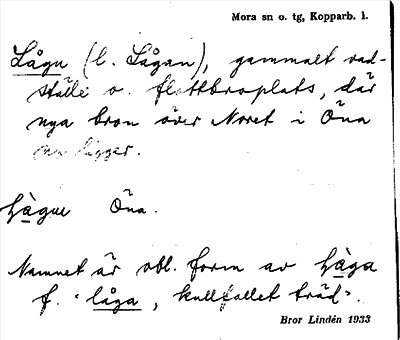 Mora sn o. tg, Kopparb. l.
Lågu (l. Lågan), gammalt vad-
ställe o. flottbroplats, där
nya bron över Noret i Öna
nu ligger.
lå̀gue Öna.
Namnet är obl. form av lå̀ga
f. "låga, kullfallet träd".
Bror Lindén 1933